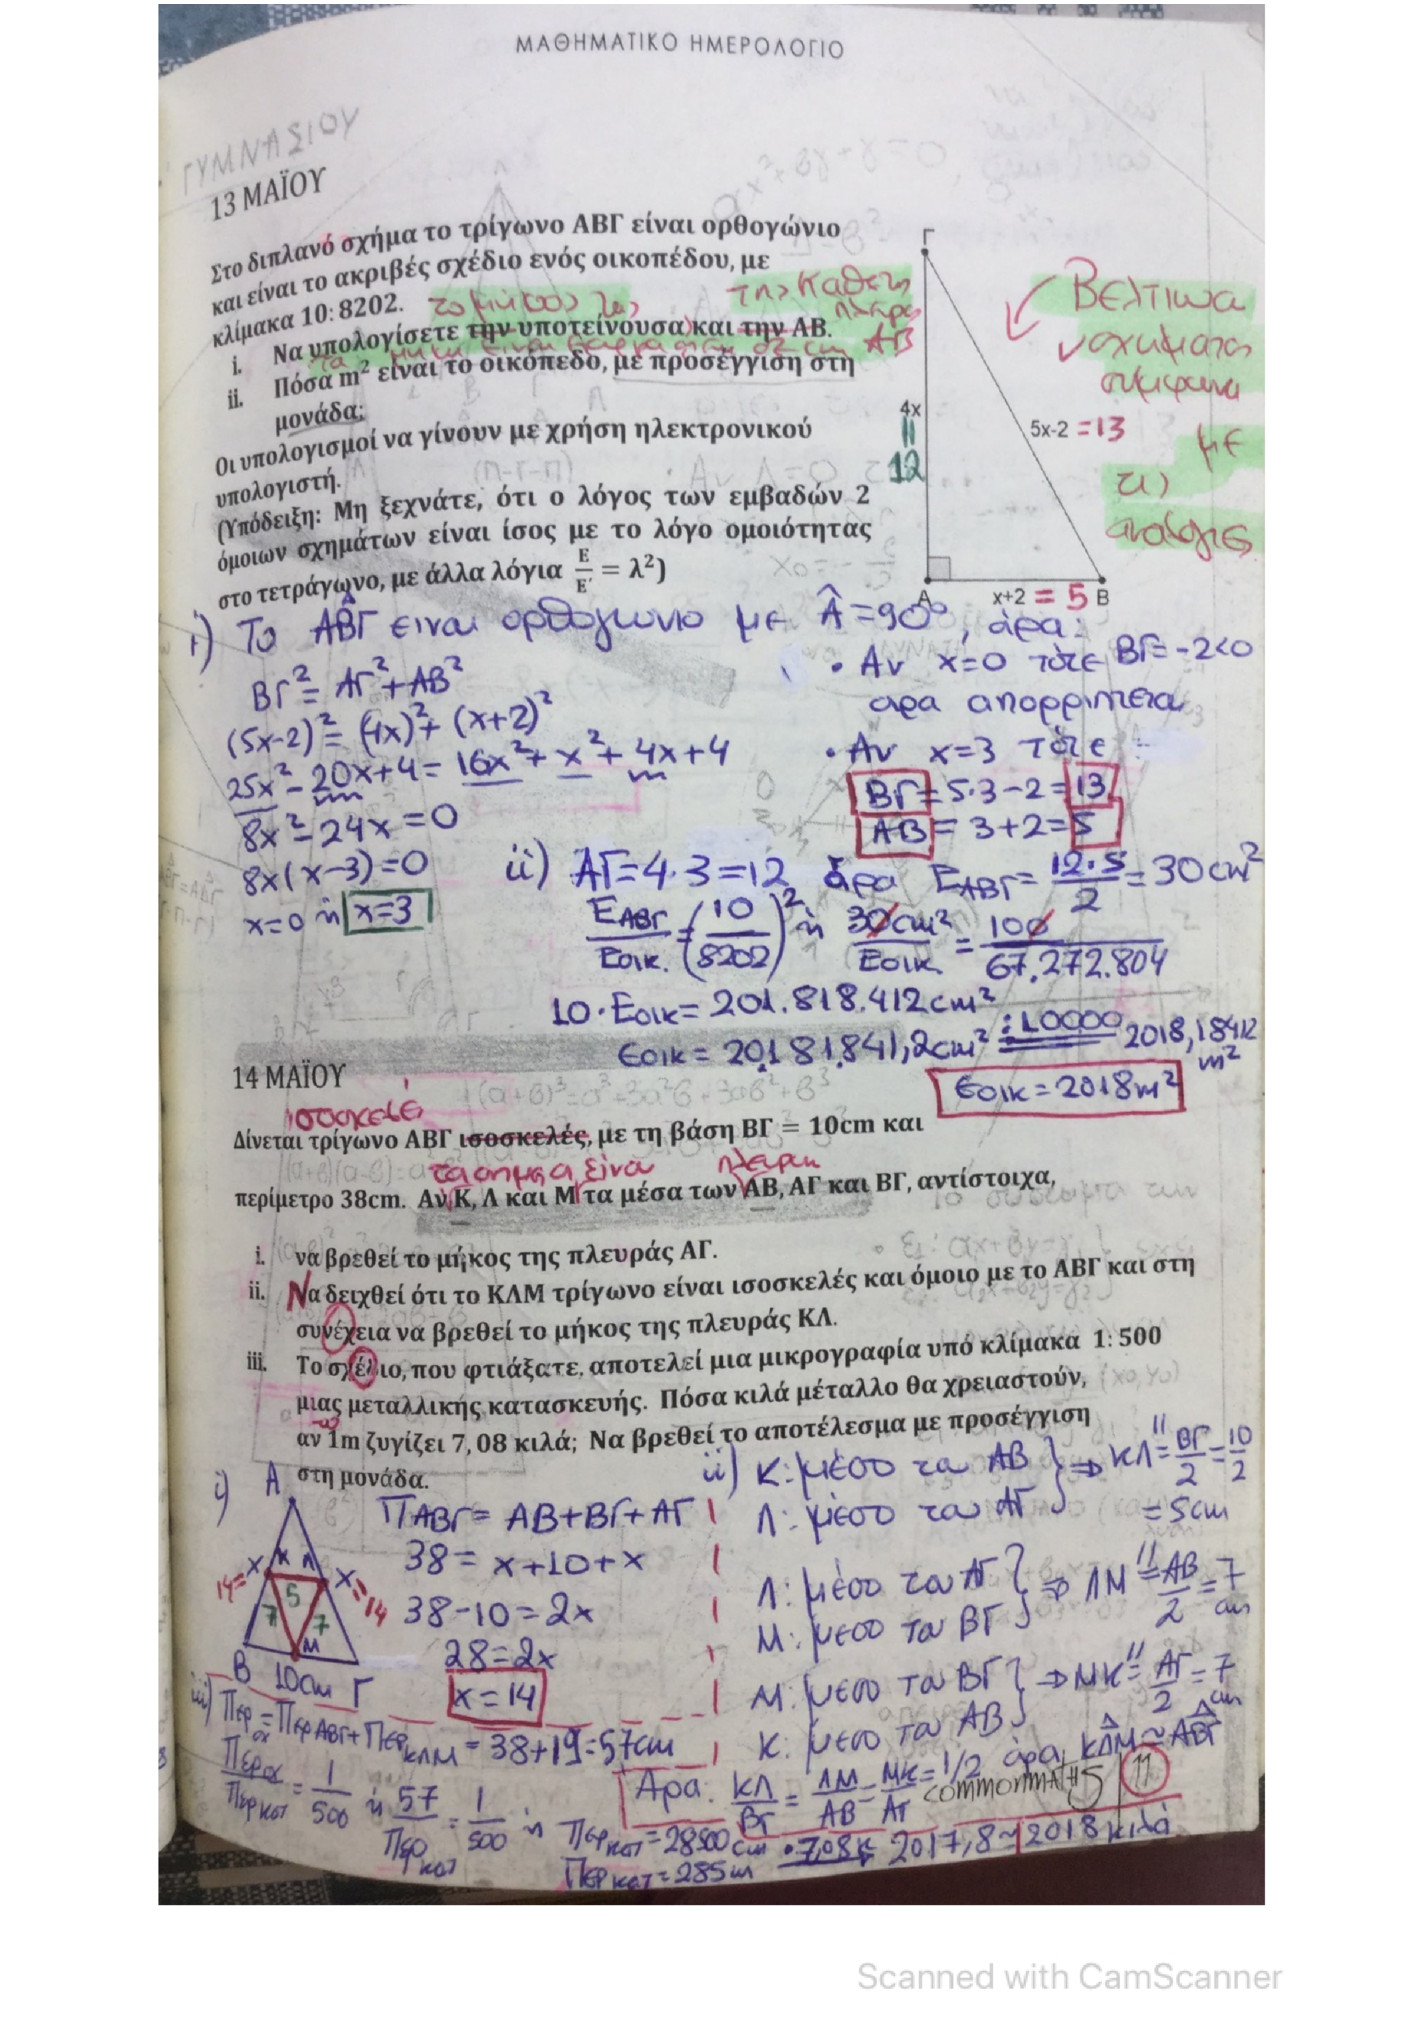 ΜΑΘΗΜΑΤΙΚΟ ΗΜΕΡΟΛΟΓΙΟ
ΓΥΜΝΑΣΙΟΥ
13 ΜΑΪΟΥ
Στο διπλανό σχήμα το τρίγωνο ΑΒΓ είναι ορθογώνιο
και είναι το ακριβές σχέδιο ενός οικοπέδου, με
κλίμακα 10: 8202.
το μήκος της
της κάθετης
πλευράς
ΑΒ
i. Να υπολογίσετε την υποτείνουσα και την ΑΒ.
ii. Πόσα m² είναι το οικόπεδο, με προσέγγιση στη
μονάδα;
Οι υπολογισμοί να γίνουν με χρήση ηλεκτρονικού
υπολογιστή.
(Υπόδειξη: Μη ξεχνάτε, ότι ο λόγος των εμβαδών 2
όμοιων σχημάτων είναι ίσος με το λόγο ομοιότητας
στο τετράγωνο, με άλλα λόγια Ε/Ε' = λ²)
Γ
4x
=
12
5x-2 = 13
Α x+2 = 5 Β
Βελτίωσ
σχήματος
σύμφωνα
με
τις
αναλογίες
i) Το ΑΒΓ είναι ορθογώνιο με Â = 90°, άρα:
ΒΓ² = ΑΓ² + ΑΒ²
(5x-2)² = (4x)² + (x+2)²
25x² - 20x + 4 = 16x² + x² + 4x + 4
8x² - 24x = 0
8x(x-3) = 0
x=0 ή x=3
• Αν x=0 τότε ΒΓ = -2<0
άρα απορρίπτεται
• Αν x=3 τότε :
ΒΓ = 5·3-2 = 13
ΑΒ = 3+2 = 5
ii) ΑΓ = 4·3 = 12 άρα Ε_ΑΒΓ = 12·5/2 = 30 cm²
Ε_ΑΒΓ/Εοικ. = (10/8202)² ή 30cm²/Εοικ. = 100/67.272.804
10·Εοικ = 201.818.412 cm²
Εοικ = 20.181.841,2cm² :10000 2018,18412 m²
Εοικ = 2018m²
14 ΜΑΪΟΥ
ισοσκελές
Δίνεται τρίγωνο ΑΒΓ ισοσκελές, με τη βάση ΒΓ = 10cm και
τα σημεία είναι πλευρών
περίμετρο 38cm. Αν Κ, Λ και Μ τα μέσα των ΑΒ, ΑΓ και ΒΓ, αντίστοιχα,
i. να βρεθεί το μήκος της πλευράς ΑΓ.
ii. Να δειχθεί ότι το ΚΛΜ τρίγωνο είναι ισοσκελές και όμοιο με το ΑΒΓ και στη
συνέχεια να βρεθεί το μήκος της πλευράς ΚΛ.
iii. Το σχέδιο, που φτιάξατε, αποτελεί μια μικρογραφία υπό κλίμακα 1: 500
μιας μεταλλικής κατασκευής. Πόσα κιλά μέταλλο θα χρειαστούν,
αν 1m ζυγίζει 7, 08 κιλά; Να βρεθεί το αποτέλεσμα με προσέγγιση
στη μονάδα.
i) Α
Κ Λ
14=x x=14
5
7 7
Μ
Β 10cm Γ
Π_ΑΒΓ = ΑΒ+ΒΓ+ΑΓ
38 = x+10+x
38-10=2x
28=2x
x=14
ii) Κ: μέσο του ΑΒ
Λ: μέσο του ΑΓ ⇒ ΚΛ ∥= ΒΓ/2 = 10/2
= 5cm
Λ: μέσο του ΑΓ
Μ: μέσο του ΒΓ ⇒ ΛΜ ∥= ΑΒ/2 = 7 cm
Μ: μέσο του ΒΓ
Κ: μέσο του ΑΒ ⇒ ΜΚ ∥= ΑΓ/2 = 7 cm
Άρα: ΚΛ/ΒΓ = ΛΜ/ΑΒ = ΜΚ/ΑΓ = 1/2 άρα ΚΛΜ ≈ ΑΒΓ
iii) Περ_σχ = Περ_ΑΒΓ + Περ_ΚΛΜ = 38+19=57cm
Περσχ/Περκατ = 1/500 ή 57/Περκατ = 1/500 ή Περκατ = 28500 cm
Περκατ = 285m
·7,08κ 2017,8 ≈ 2018 κιλά
commonmaths 11
Scanned with CamScanner